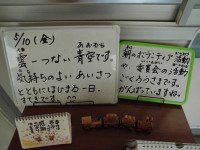 5/10(金)
あおぞら
雲一つない青空です。
気持ちのよい あいさつ
とともにはじまる一日。
すてきです。
朝のボランティア活動
や 委員会の活動
ごくろうさまです。
がんばっていますね。